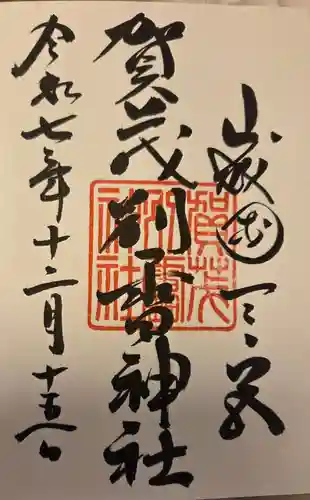 山城國一之宮
賀茂別雷神社
令和七年十二月十五日
賀茂別雷神社